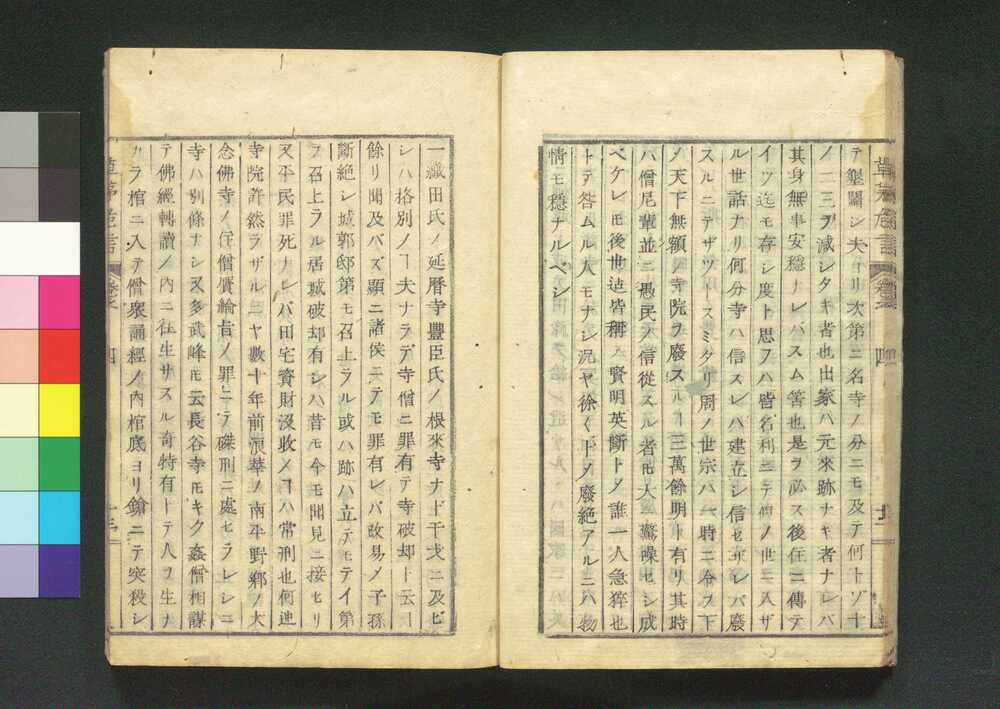 草茅危言
テ墾闢シ夫ヨリ次第ニ名寺ノ分ニモ及テ何トゾ十
ノ二三ヲ減シタキ者也出家ハ元來跡ナキ者ナレバ
其身無事安穩ナレバスム筈也是ヲ必ス後住ニ傳テ
イツ迄モ存シ度ト思フハ皆名利ニテ俗ノ世ニ入ザ
ル世話ナリ何分寺ハ信スレバ建立シ信セザレバ廢
スルニテザツトスミタリ周ノ世宗ハ一時ニ令ヲ下
ノ天下無額ノ寺院ヲ廢スルヿ三萬餘明ト有リ其時
ハ僧尼輩並ニ愚民ノ信從スル者モ大ニ驚噪セシ成
ベケレモ後世迠皆稱ノ賢明英斷トメ誰一人急猝也
トテ咎ムル人モナシ況ヤ徐くトメ廢絶アルニハ物
情モ穩ナルベシ
一織田氏ノ延暦寺豐臣氏ノ根來寺ナド干戈ニ及ビ
シハ格別ノヿ夫ナラデ寺僧ニ罪有テ寺破却ト云ヿ
餘リ聞及バズ顯ニ諸侯ニテモ罪有レバ改易メ子孫
斷絶シ城郭邸第モ召上ラル或ハ跡ハ立テモテイ第
ヲ召上ラル居城破却有シハ昔モ今モ聞見ニ接セリ
又平民罪死ナレバ田宅資財沒收ノヿハ常刑也何迚
寺院許然ラザルニヤ數十年前浪華ノ南平野郷ノ大
念佛寺ノ住僧僞綸旨ノ罪ニテ磔刑ニ處セラレシニ
寺ハ別條ナシ又多武峰モ云長谷寺モキク姦僧相謀
テ佛經轉讀ノ内ニ往生サスル奇特有トテ人ヲ生ナ
カラ棺ニ入テ僧衆誦經ノ内棺底ヨリ鎗ニテ突殺シ
草茅危言